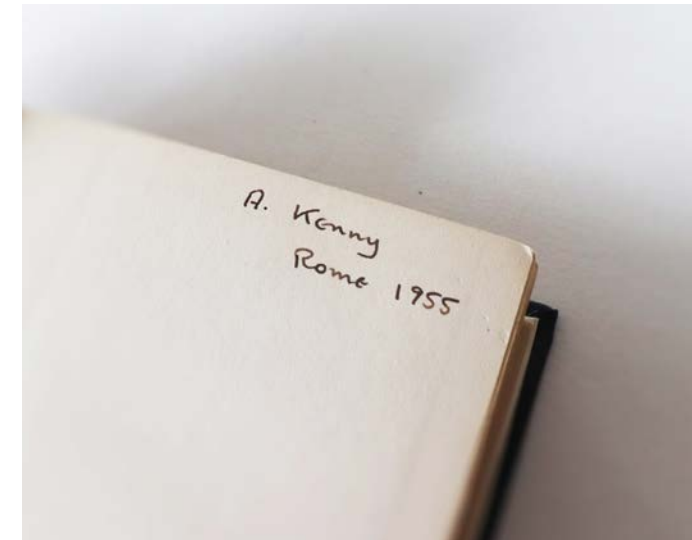 A. Kenny
Rome 1955